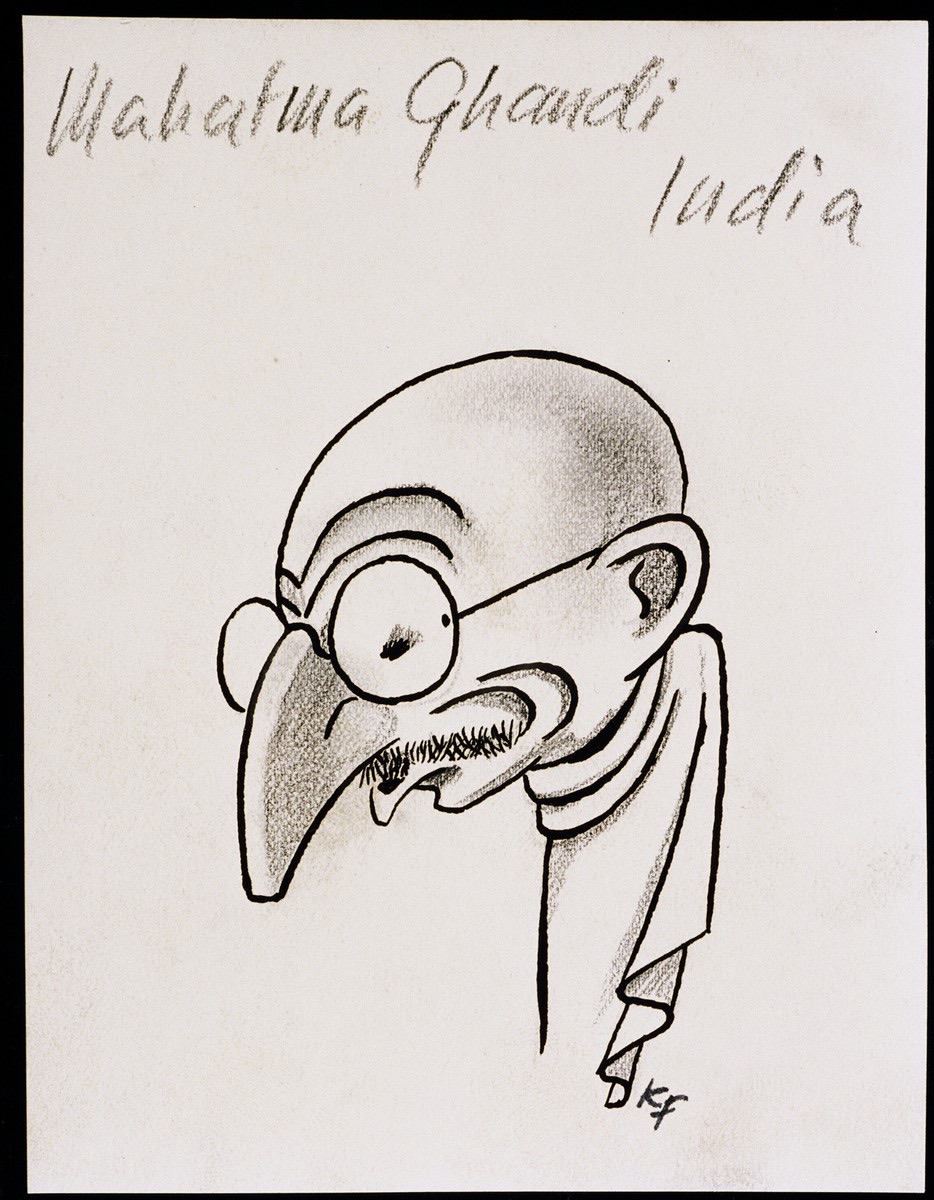 Mahatma Ghandi
India
KF